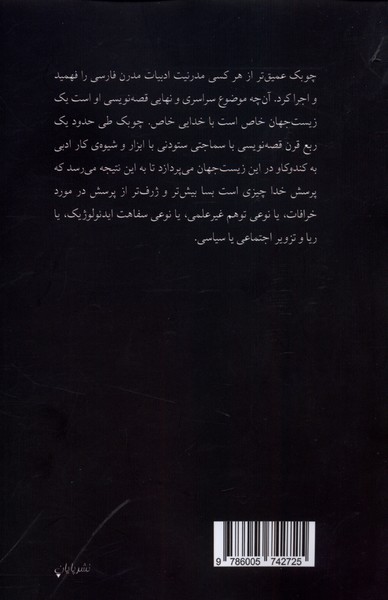 چوبک عمیق‌تر از هر کسی مدرنیت ادبیات مدرن فارسی را فهمید
و اجرا کرد. آن‌چه موضوع سراسری و نهایی قصه‌نویسی او است یک
زیست‌جهان خاص است با خدایی خاص. چوبک طی حدود یک
ربع قرن قصه‌نویسی با سماجتی ستودنی با ابزار و شیوه‌ی کار ادبی
به کندوکاو در این زیست‌جهان می‌پردازد تا به این نتیجه می‌رسد که
پرسش خدا چیزی است بسا بیش‌تر و ژرف‌تر از پرسش در مورد
خرافات، یا نوعی توهم غیرعلمی، یا نوعی سفاهت ایدئولوژیک، یا
ریا و تزویر اجتماعی یا سیاسی.
9 786005 742725
نشر پایان